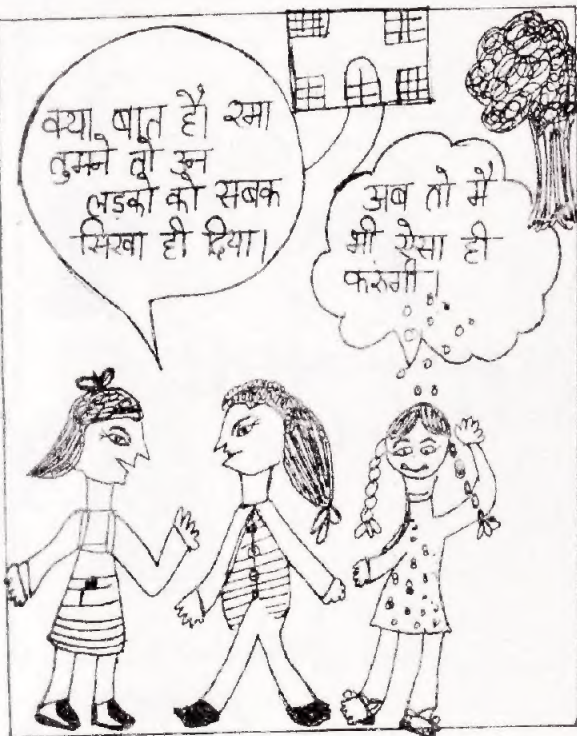 क्या बात है। रमा
तुमने तो उन
लड़को को सबक
सिखा ही दिया।
अब तो मैं
भी ऐसा ही
करुंगी।